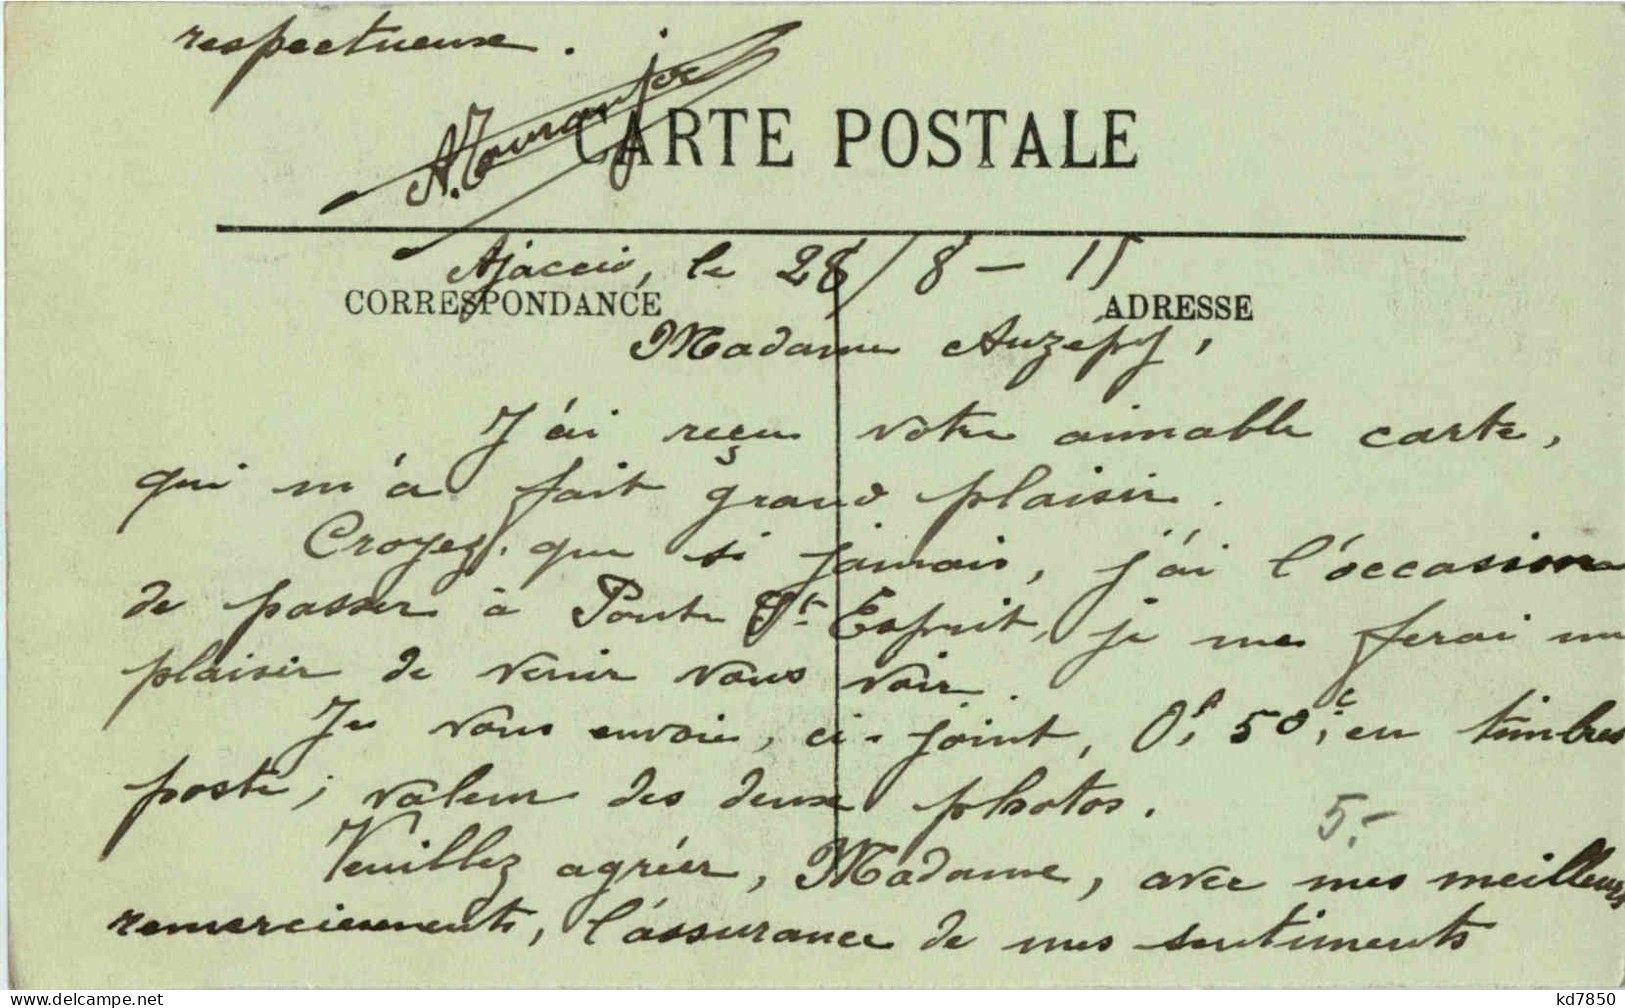 respectueuse.
CARTE POSTALE
Ajaccio, le 28/8-15
CORRESPONDANCE
ADRESSE
Madame Auzépy,
J'ai reçu votre aimable carte,
qui m'a fait grand plaisir.
Croyez, que si jamais, j'ai l'occasion
de passer à Pont St Esprit, je me ferai un
plaisir de venir vous voir.
Je vous envoie, ci-joint, 0f,50c, en timbres
poste; valeur des deux photos.
5.-
Veuillez agréer, Madame, avec mes meilleurs
remerciements, l'assurance de mes sentiments
www.delcampe.net
kd7850